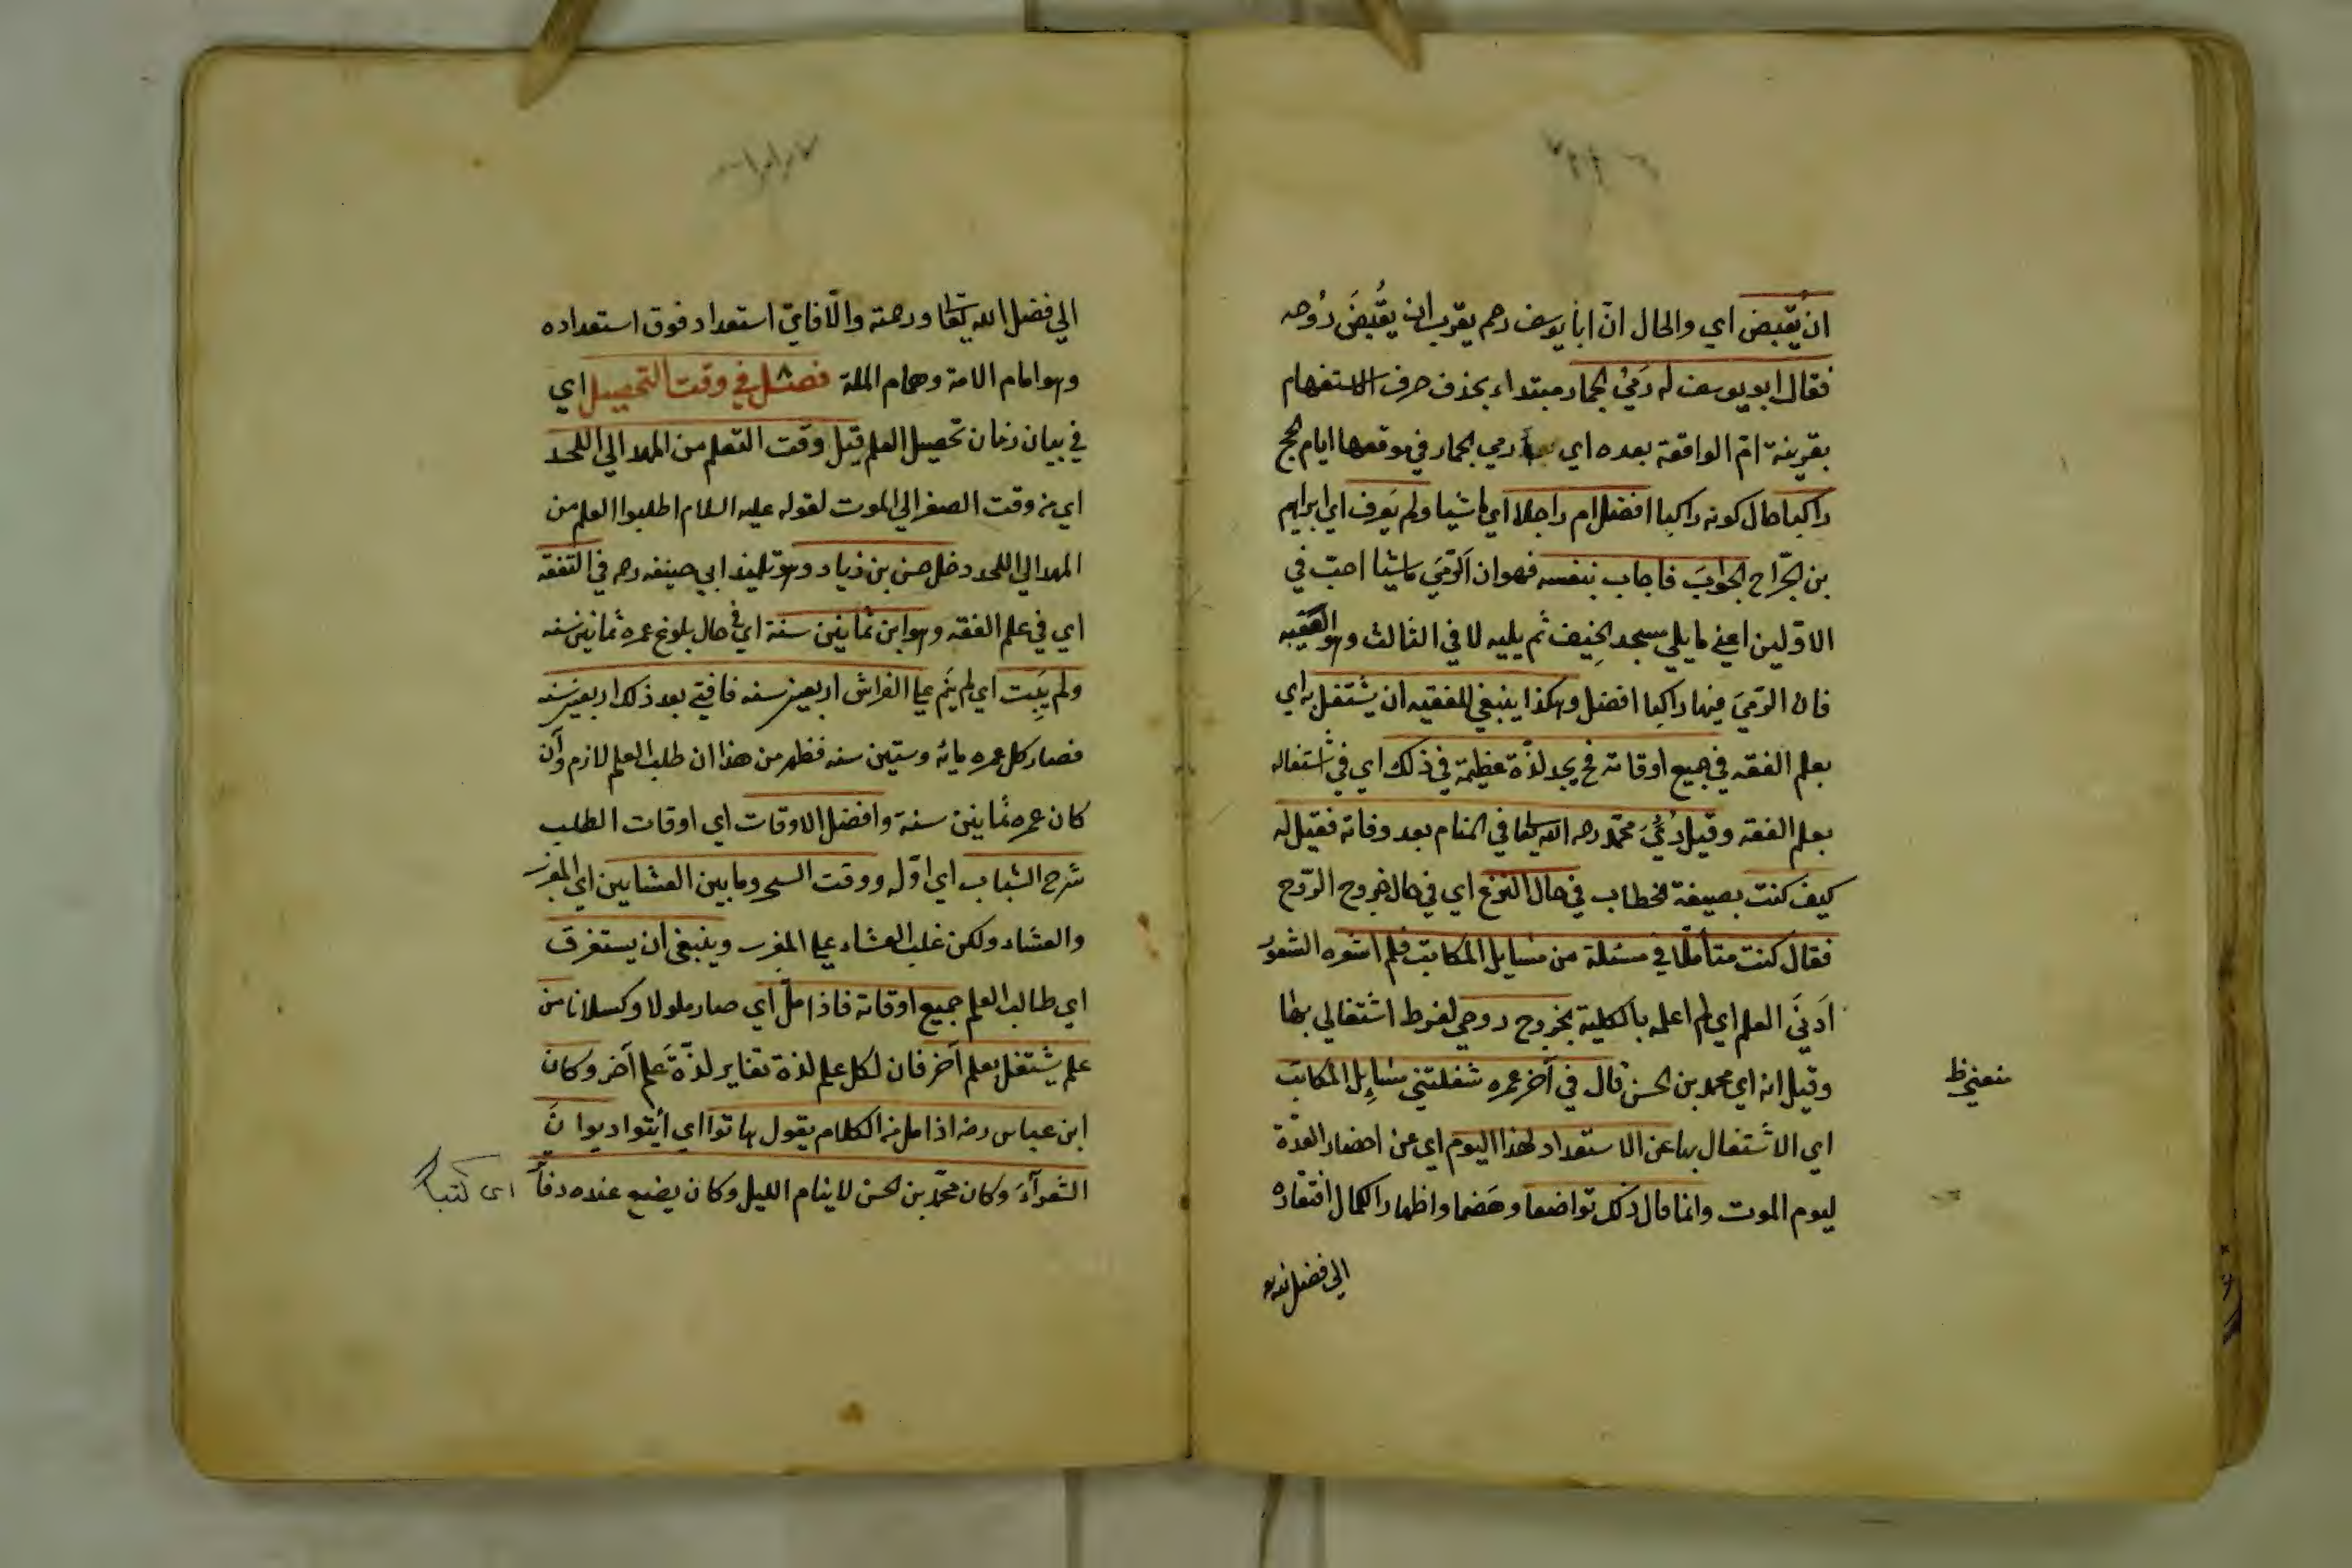 ان يُقبض اي والحال انّ ابا يوسف رحم يقرب ان يُقبَضَ رُوحه
فقال ابو يوسف له رَمْيُ الجمار مبتداء بحذف حرف الاستفهام
بقرينة ام الواقعة بعده اي رمي الجمار في موقعها ايام الحج
راكبا حال كونه راكبا افضل ام راجلا اي ماشيا ولم يَعرف اي ابراهيم
بن الجرّاح الجوابَ فاجاب بنفسه فهو ان الرّميَ ماشيا احبّ في
الاوّلين اعني ما يلي مسجد الخِيف ثم يليه لا في الثالث وهو العقبه
فان الرّميَ فيها راكبا افضل وهكذا ينبغي للفقيه ان يشتغل به اي
بعلم الفقه في جميع اوقاته فح يجد لذّة عظيمة في ذلك اي في اشتغاله
بعلم الفقه وقيل رُئِيَ محمّد رحه الله تعا في المنام بعد وفاته فقيل له
كيف كنت بصيغة الخطاب في حال النزع اي في حال خروج الرّوح
فقال كنت متأملا في مسئلة من مسايل المكاتب فلم اشعره الشعور
اَدنَى العلم اي لم اعلمه بالكلية بخروج روحي لفرط اشتغالي بها
وقيل انه اي محمد بن الحسن قال في آخر عمره شغلتني مسايل المكاتب
اي الاشتغال بها عن الاستعداد لهذا اليوم اي عن احضار العدّة
ليوم الموت وانما قال ذلك تواضعا وهَضما واظهارا لكمال افتقاره
الى فضل الله
منعتني ظ
الي فضل الله تعا ورحمته والّا فايّ استعداد فوق استعداده
وهو امام الامة وهمام الملة فصل في وقت التحصيل اي
في بيان زمان تحصيل العلم قيل وقت التعلم من المهد الي اللحد
اي من وقت الصغر الي الموت لقوله عليه السلام اطلبوا العلم من
المهد الي اللحد دخل حسن بن زياد وهو تلميذ ابي حنيفه رحه في التفقه
اي في علم الفقه وهو ابن ثمانين سنة اي في حال بلوغ عمره ثمانين سنه
ولم يَبِت اي لم ينَم علي الفراش اربعين سنه فافتي بعد ذلك اربعين سنه
فصار كل عمره مائه وستين سنه فظهر من هذا ان طلب العلم لازم وان
كان عمره ثمانين سنة وافضل الاوقات اي اوقات الطلب
شرح الشباب اي اوّله ووقت السحر وما بين العشايين اي المغرب
والعشاء ولكن غلب العشاء علي المغرب وينبغي ان يستغرق
اي طالب العلم جميع اوقاته فاذا ملّ اي صار ملولا وكسلانا من
علم يشتغل بعلم آخر فان لكل علم لذة تغاير لذّةَ علم آخر وكان
ابن عباس رضه اذا مل من الكلام يقول هاتوا اي ايتوا ديوان
الشعرآءِ وكان محمّد بن الحسن لا ينام الليل وكان يضع عنده دفا
اى كتبا